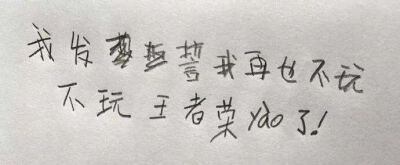 我发誓我再也不玩
不玩王者荣yao了！